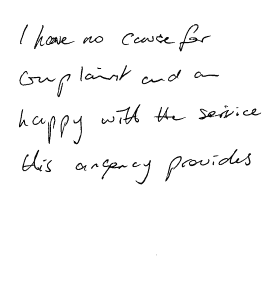 I have no cause for
complaint and am
happy with the service
this agency provides